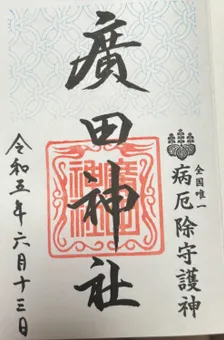 全国唯一
病厄除守護神
廣田神社
令和五年六月十三日